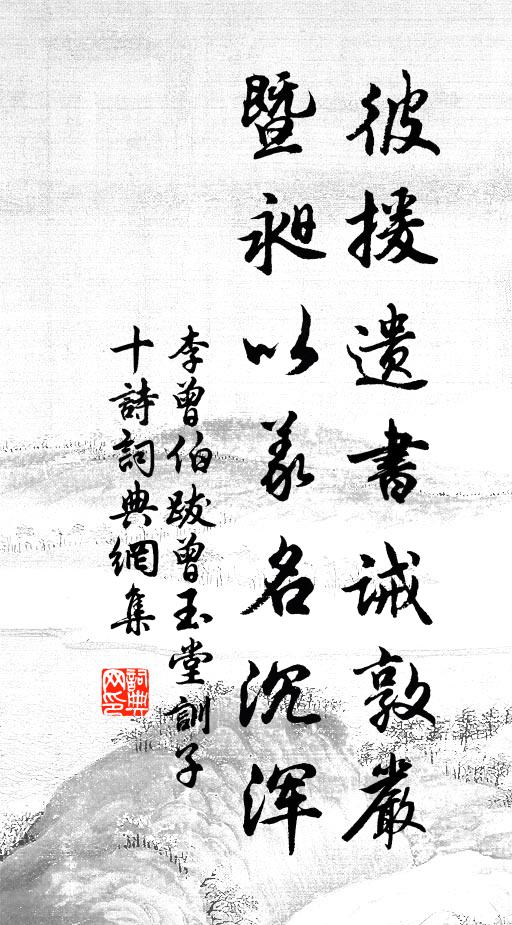 彼援遺書誡敦嚴
暨昶以義名沉渾
李曾伯跋曾玉堂訓子
十詩詞典網集
詞典網印